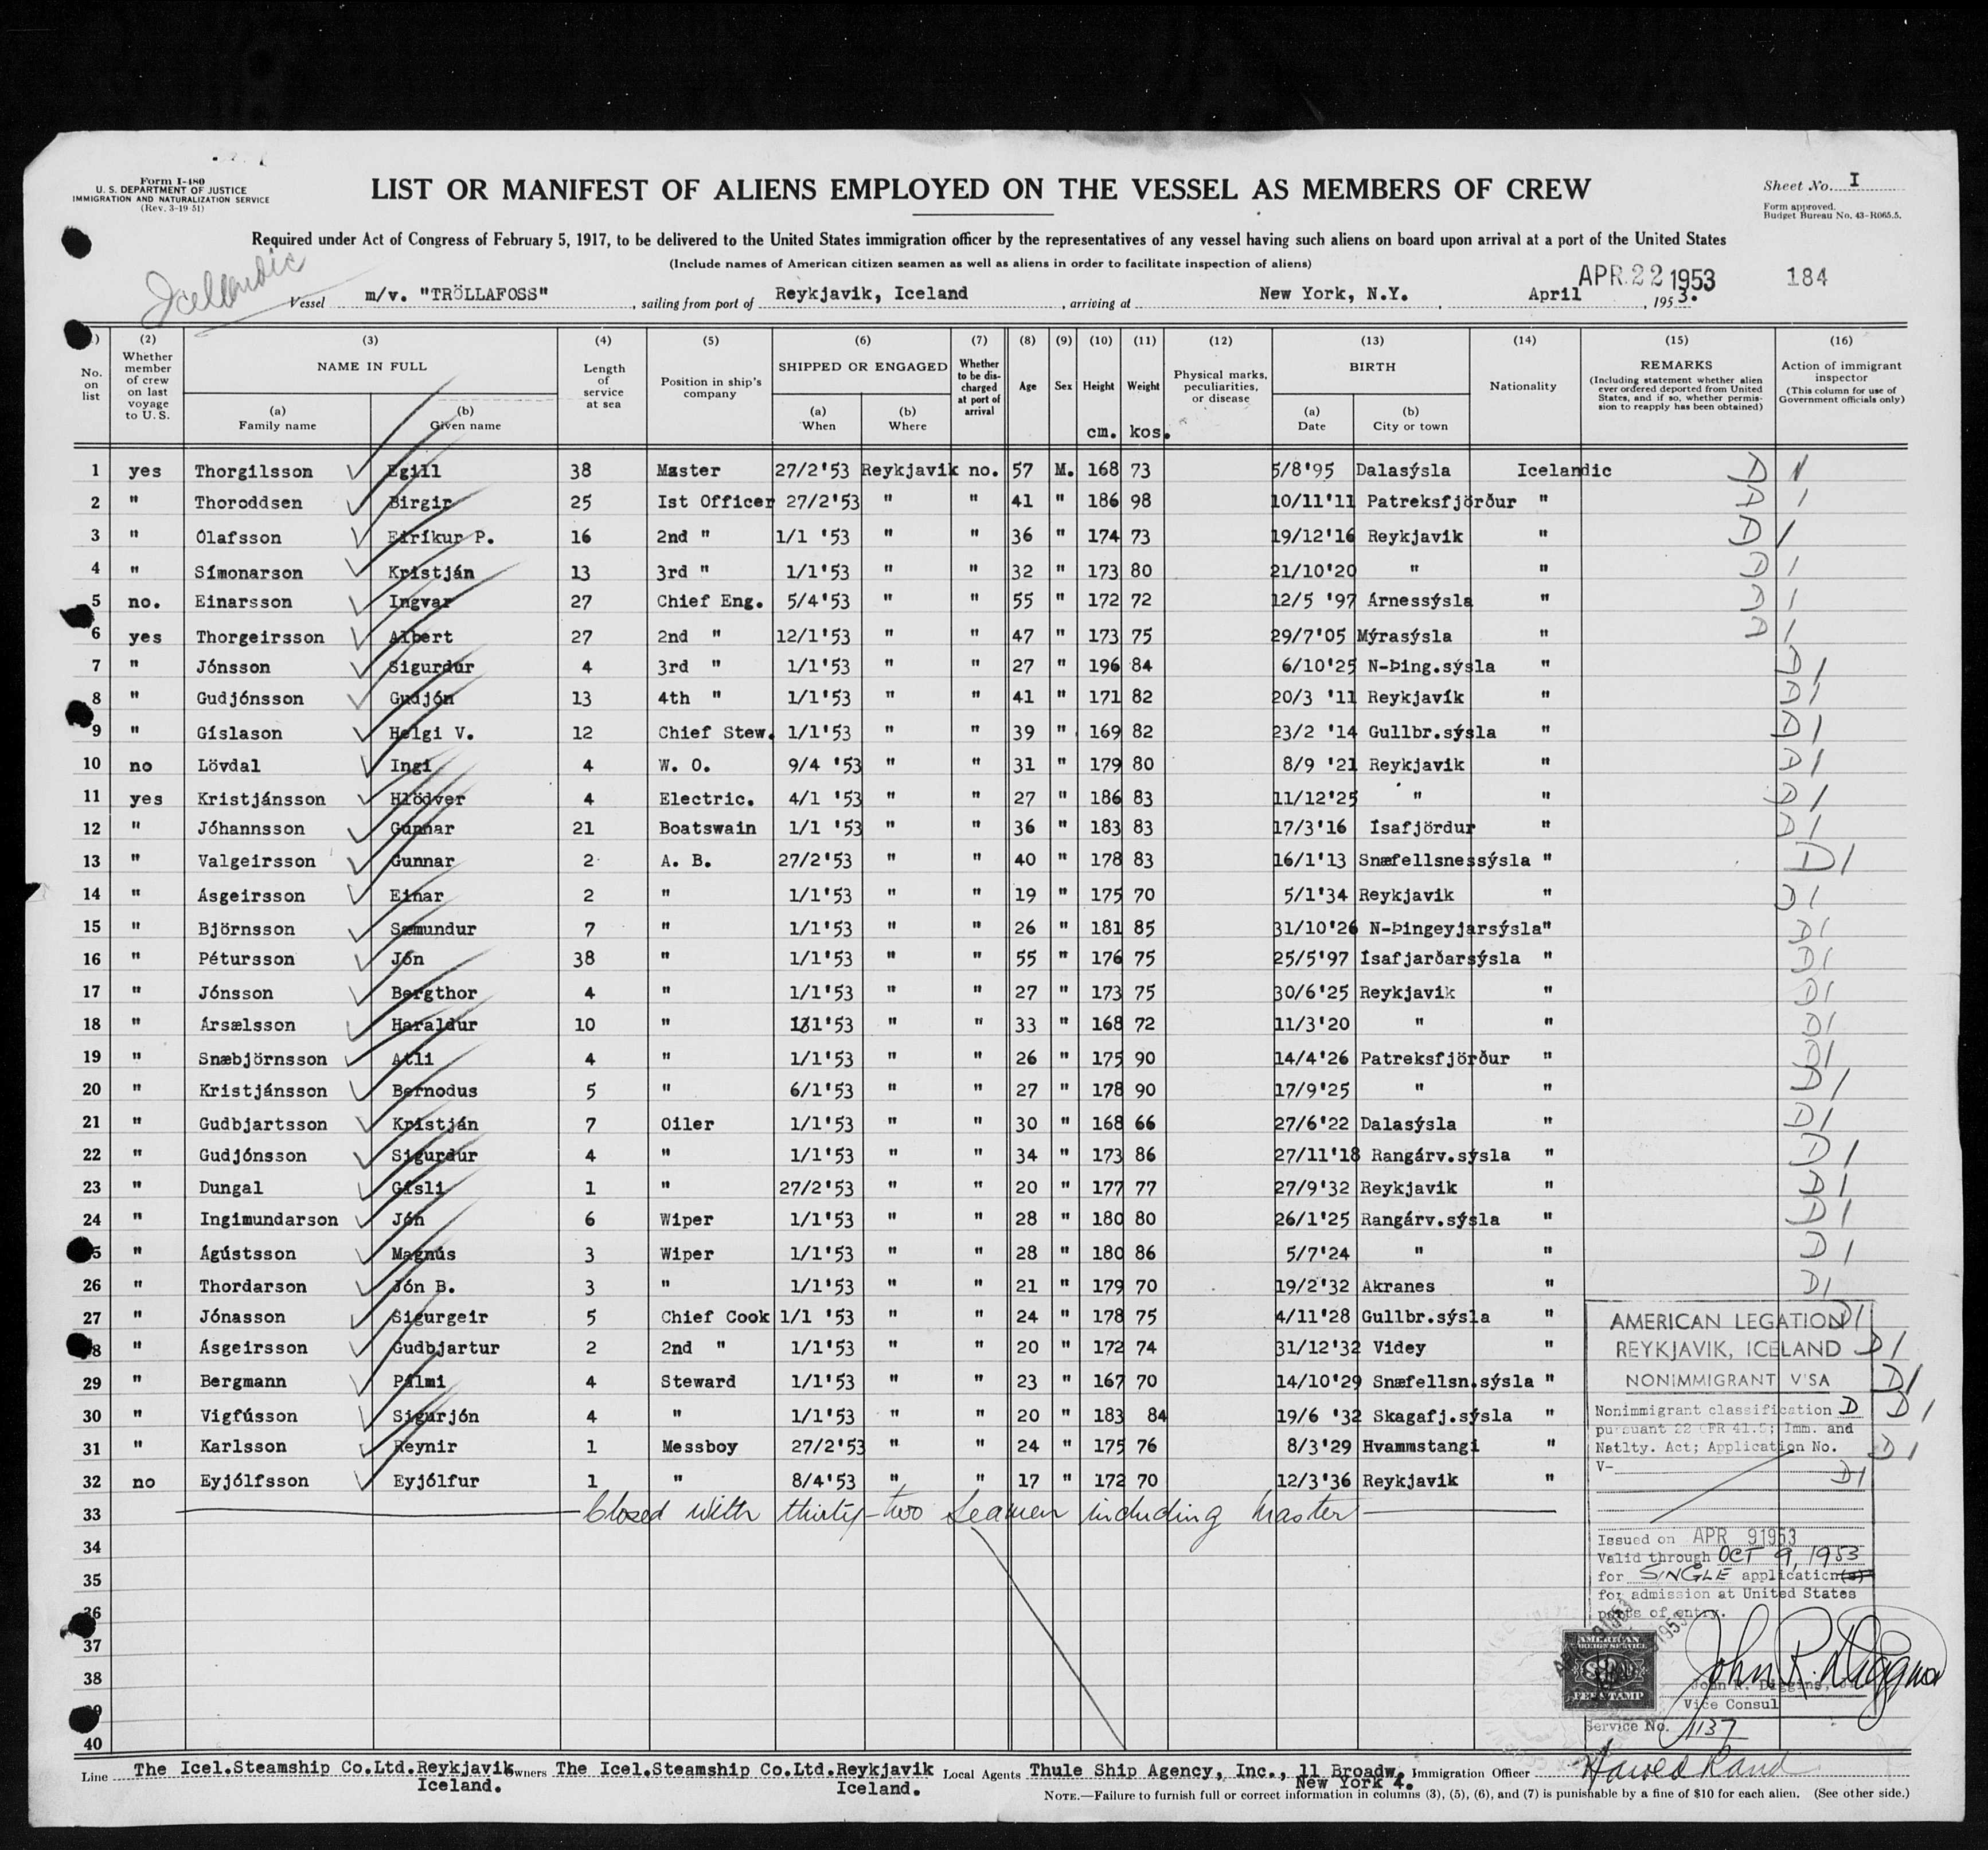 Form I-480
U. S. DEPARTMENT OF JUSTICE
IMMIGRATION AND NATURALIZATION SERVICE
(Rev. 3-19-51)
LIST OR MANIFEST OF ALIENS EMPLOYED ON THE VESSEL AS MEMBERS OF CREW
Sheet No. I
Form approved.
Budget Bureau No. 43-R065.5.
Required under Act of Congress of February 5, 1917, to be delivered to the United States immigration officer by the representatives of any vessel having such aliens on board upon arrival at a port of the United States
(Include names of American citizen seamen as well as aliens in order to facilitate inspection of aliens)
Icelandic
APR 22 1953 184
Vessel m/v. "TRÖLLAFOSS" , sailing from port of Reykjavik, Iceland , arriving at New York, N.Y. , April , 1953.
(2) (3) (4) (5) (6) (7) (8) (9) (10) (11) (12) (13) (14) (15) (16)
No. on list Whether member of crew on last voyage to U. S. NAME IN FULL Length of service at sea Position in ship's company SHIPPED OR ENGAGED Whether to be discharged at port of arrival Age Sex Height Weight Physical marks, peculiarities, or disease BIRTH Nationality REMARKS (Including statement whether alien ever ordered deported from United States, and if so, whether permission to reapply has been obtained) Action of immigrant inspector (This column for use of Government officials only)
(a) Family name (b) Given name (a) When (b) Where cm. kos. (a) Date (b) City or town
1 yes Thorgilsson Egill 38 Master 27/2'53 Reykjavik no. 57 M. 168 73 5/8'95 Dalasýsla Icelandic
2 " Thoroddsen Birgir 25 Ist Officer 27/2'53 " " 41 " 186 98 10/11'11 Patreksfjörður "
3 " Ólafsson Eiríkur P. 16 2nd " 1/1 '53 " " 36 " 174 73 19/12'16 Reykjavik "
4 " Símonarson Kristján 13 3rd " 1/1'53 " " 32 " 173 80 21/10'20 " "
5 no. Einarsson Ingvar 27 Chief Eng. 5/4'53 " " 55 " 172 72 12/5 '97 Árnessýsla "
6 yes Thorgeirsson Albert 27 2nd " 12/1'53 " " 47 " 173 75 29/7'05 Mýrasýsla "
7 " Jónsson Sigurdur 4 3rd " 1/1'53 " " 27 " 196 84 6/10'25 N-Þing.sýsla "
8 " Gudjónsson Gudjón 13 4th " 1/1'53 " " 41 " 171 82 20/3 '11 Reykjavík "
9 " Gíslason Helgi V. 12 Chief Stew. 1/1'53 " " 39 " 169 82 23/2 '14 Gullbr.sýsla "
10 no Lövdal Ingi 4 W. O. 9/4 '53 " " 31 " 179 80 8/9 '21 Reykjavik "
11 yes Kristjánsson Hlödver 4 Electric. 4/1 '53 " " 27 " 186 83 11/12'25 " "
12 " Jóhannsson Gunnar 21 Boatswain 1/1 '53 " " 36 " 183 83 17/3'16 Ísafjördur "
13 " Valgeirsson Gunnar 2 A. B. 27/2'53 " " 40 " 178 83 16/1'13 Snæfellsnessýsla "
14 " Ásgeirsson Einar 2 " 1/1'53 " " 19 " 175 70 5/1'34 Reykjavik "
15 " Björnsson Sæmundur 7 " 1/1'53 " " 26 " 181 85 31/10'26 N-Þingeyjarsýsla "
16 " Pétursson Jón 38 " 1/1'53 " " 55 " 176 75 25/5'97 Ísafjarðarsýsla "
17 " Jónsson Bergthor 4 " 1/1'53 " " 27 " 173 75 30/6'25 Reykjavik "
18 " Ársælsson Haraldur 10 " 1/1'53 " " 33 " 168 72 11/3'20 " "
19 " Snæbjörnsson Atli 4 " 1/1'53 " " 26 " 175 90 14/4'26 Patreksfjörður "
20 " Kristjánsson Bernodus 5 " 6/1'53 " " 27 " 178 90 17/9'25 " "
21 " Gudbjartsson Kristján 7 Oiler 1/1'53 " " 30 " 168 66 27/6'22 Dalasýsla "
22 " Gudjónsson Sigurdur 4 " 1/1'53 " " 34 " 173 86 27/11'18 Rangárv.sýsla "
23 " Dungal Gísli 1 " 27/2'53 " " 20 " 177 77 27/9'32 Reykjavik "
24 " Ingimundarson Jón 6 Wiper 1/1'53 " " 28 " 180 80 26/1'25 Rangárv.sýsla "
25 " Ágústsson Magnús 3 Wiper 1/1'53 " " 28 " 180 86 5/7'24 " "
26 " Thordarson Jón B. 3 " 1/1'53 " " 21 " 179 70 19/2'32 Akranes "
27 " Jónasson Sigurgeir 5 Chief Cook 1/1 '53 " " 24 " 178 75 4/11'28 Gullbr.sýsla "
28 " Ásgeirsson Gudbjartur 2 2nd " 1/1'53 " " 20 " 172 74 31/12'32 Videy "
29 " Bergmann Pálmi 4 Steward 1/1'53 " " 23 " 167 70 14/10'29 Snæfellsn.sýsla "
30 " Vigfússon Sigurjón 4 " 1/1'53 " " 20 " 183 84 19/6 '32 Skagafj.sýsla "
31 " Karlsson Reynir 1 Messboy 27/2'53 " " 24 " 175 76 8/3'29 Hvammstangi "
32 no Eyjólfsson Eyjólfur 1 " 8/4'53 " " 17 " 172 70 12/3'36 Reykjavik "
33 Closed with thirty-two seamen including master
34
35
36
37
38
39
40
AMERICAN LEGATION
REYKJAVIK, ICELAND
NONIMMIGRANT VISA
Nonimmigrant classification D
pursuant 22 CFR 41.5; Imm. and
Natlty. Act; Application No.
V-
Issued on APR 9 1953
Valid through OCT 9, 1953
for SINGLE application(s)
for admission at United States
ports of entry.
AMERICAN
FOREIGN SERVICE
FEE STAMP
John R. Diggins, Jr.
Vice Consul
Service No. 1137
Line The Icel.Steamship Co.Ltd.Reykjavik Iceland. Owners The Icel.Steamship Co.Ltd.Reykjavik Iceland. Local Agents Thule Ship Agency, Inc., 11 Broadw. New York 4. Immigration Officer Harold Rand
NOTE.—Failure to furnish full or correct information in columns (3), (5), (6), and (7) is punishable by a fine of $10 for each alien. (See other side.)